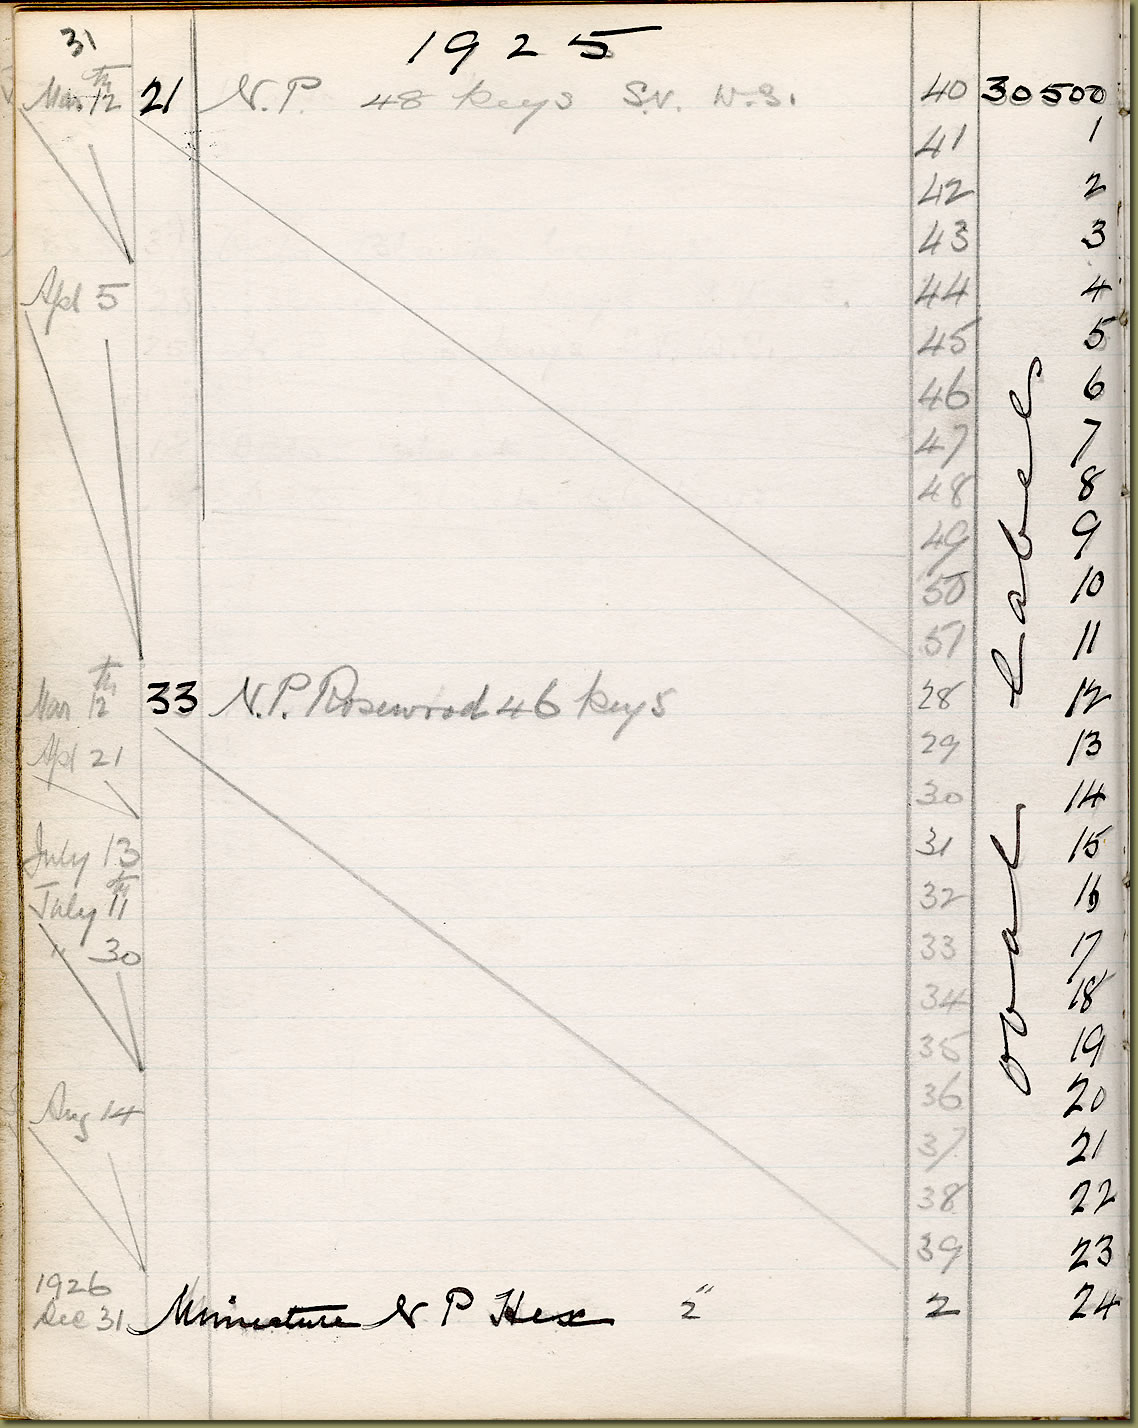 31
1925
Mar 12th 21 N.P. 48 keys S.V. W.S. 40 30500
41 1
42 2
43 3
Apl 5 44 4
45 5
46 6
47 7
48 8
49 9
50 10
51 11
Mar 12th 33 N.P. Rosewood 46 keys 28 12
Apl 21 29 13
30 14
July 13 31 15
July 11th 32 16
" 30 33 17
34 18
35 19
36 20
Aug 14 37 21
38 22
39 23
1926
Dec 31 Miniature N P Hex 2" 2 24
oval labels